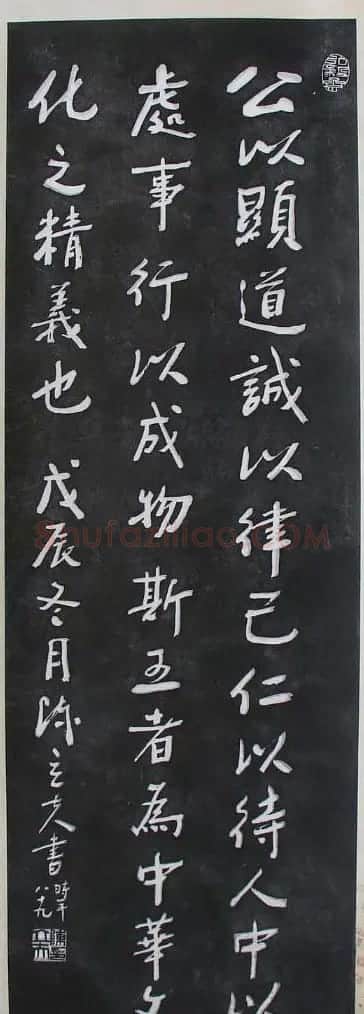 公以顯道誠以律己仁以待人中以
處事行以成物斯五者為中華文
化之精義也 戊辰冬月陳立夫書 時年八十九
shufaziliao.COM